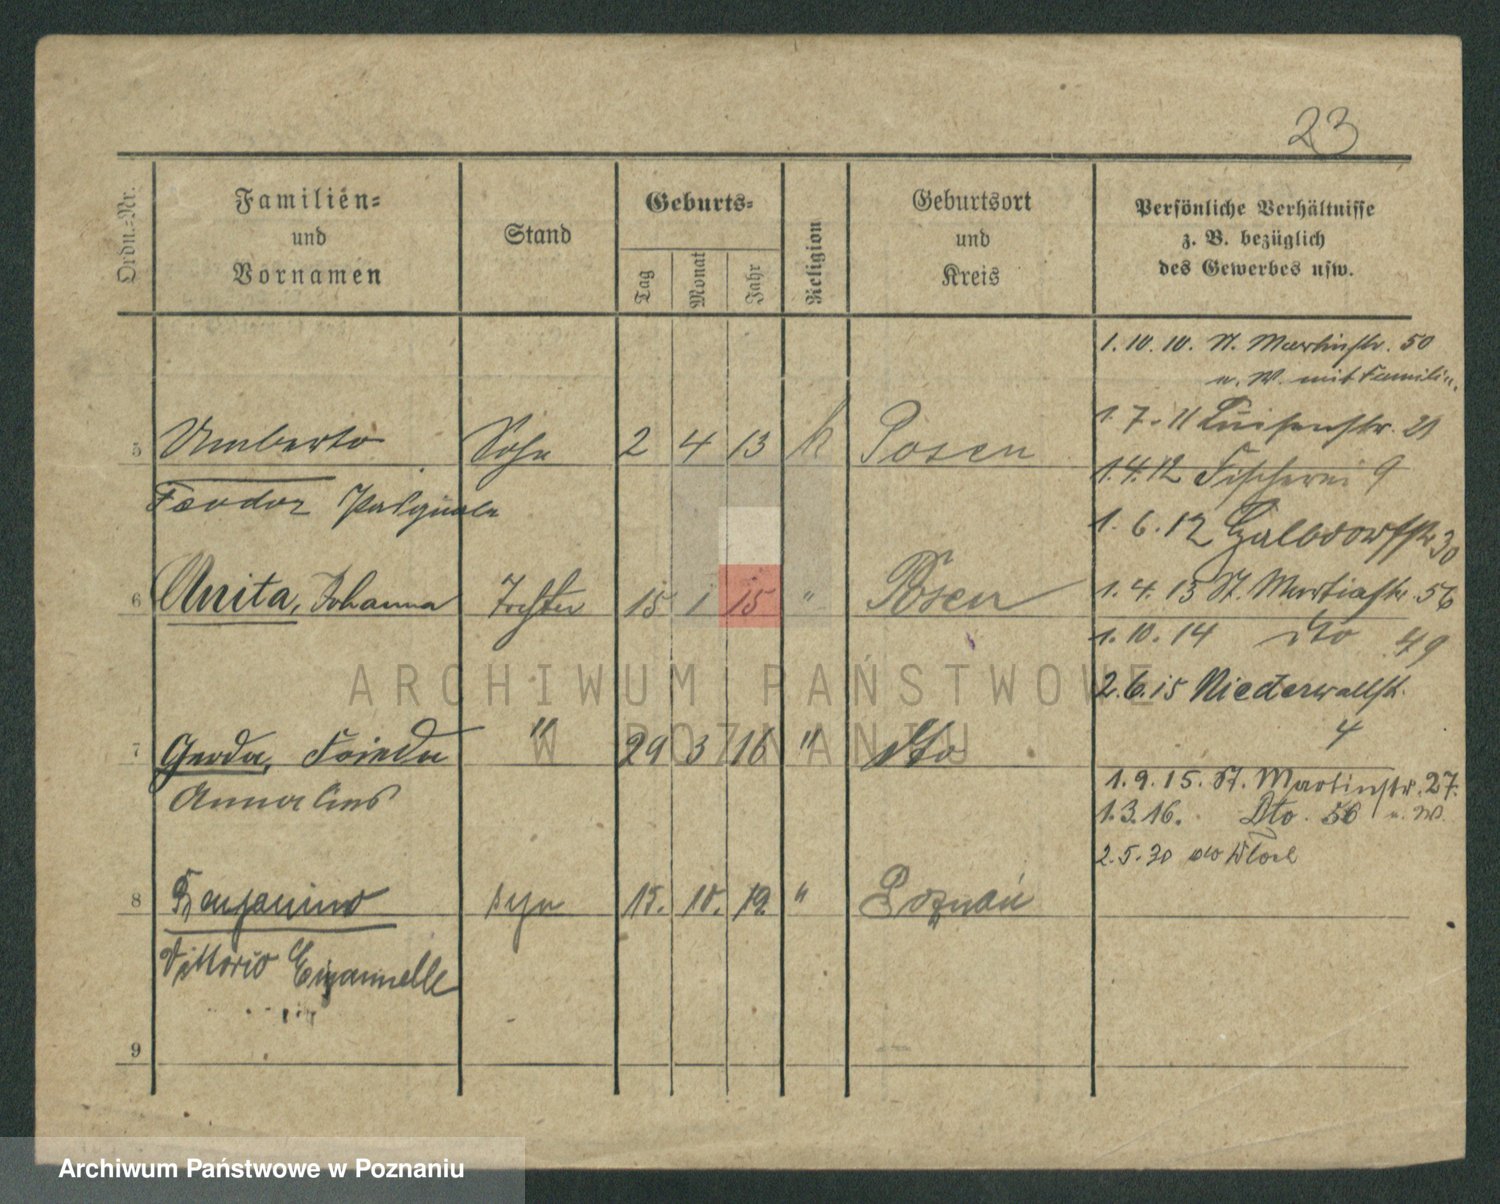 23
Ordn.-Nr.
Familien-
und
Vornamen
Stand
Geburts-
Tag
Monat
Jahr
Religion
Geburtsort
und
Kreis
Persönliche Verhältnisse
z. B. bezüglich
des Gewerbes usw.
1.10.10. St. Martinstr. 50
u. W. mit Familie.
1.7.11 Luisenstr. 21
5 Umberto Sohn 2 4 13 k Posen
1.4.12 Fischerei 9
Feodor Pasquale
1.6.12 Halbdorfstr 30
6 Anita, Johanna Tochter 15 1 15 " Posen
1.4.13 St. Martinstr. 56
1.10.14 dto 49
2.6.15 Niederwallstr.
4
7 Gerda, Frieda " 29 3 16 " dto
Annalies
1.9.15. St. Martinstr. 27.
1.3.16. Dto. 56 u. W.
2.5.30
8 Benjamino syn 15. 10. 19. " Poznań
Vittorio Emannelle
9
ARCHIWUM PAŃSTWOWE
W POZNANIU
Archiwum Państwowe w Poznaniu